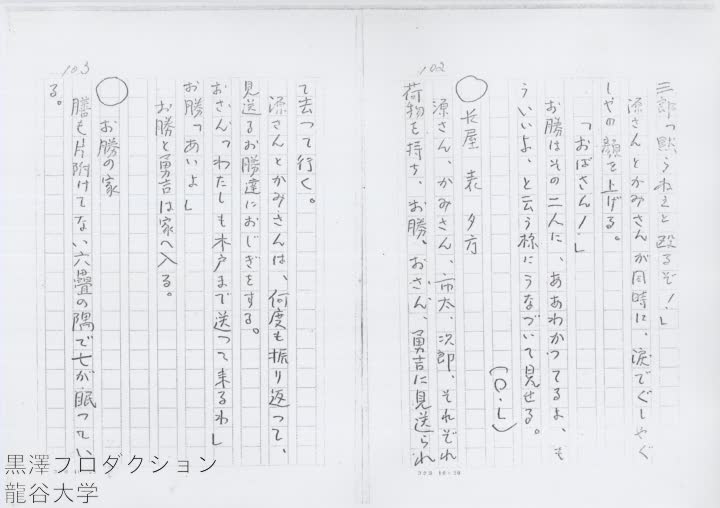 102
三郎「黙らねえと殴るぞ!」
源さんとかみさんが同時に、涙でぐしやぐ
しやの顔を上げる。
「おばさん!」
お勝はその二人に、ああわかつてるよ、も
ういいよ、と云う様にうなづいて見せる。
(O・L)
○長屋 表 夕方
源さん、かみさん、市太、次郎、それぞれ
荷物を持ち、お勝、おさん、勇吉に見送られ
103
て去つて行く。
源さんとかみさんは、何度も振り返つて、
見送るお勝達におじぎをする。
おさん「わたしも木戸まで送つて来るわ」
お勝「あいよ」
お勝と勇吉は家へ入る。
○お勝の家
膳も片附けてない六畳の隅で七が眠つてい
る。
黒澤プロダクション
龍谷大学